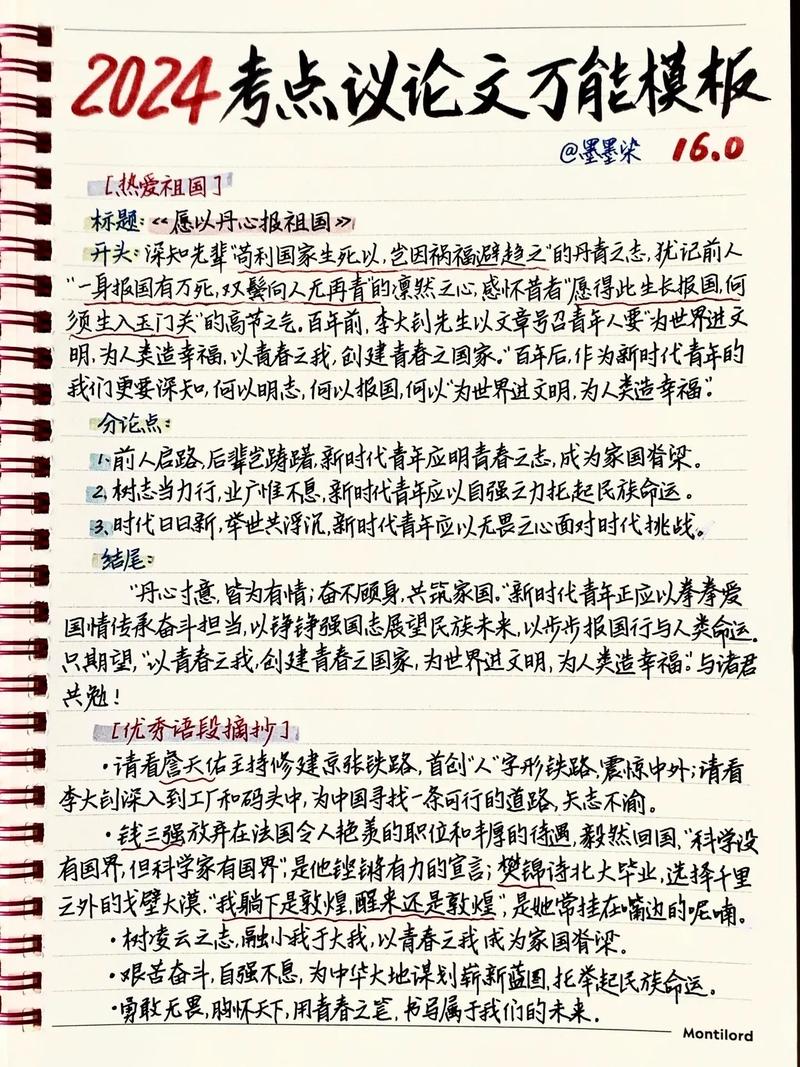 2024考点议论文万能模板
@墨墨染 16.0
[热爱祖国]
标题:《愿以丹心报祖国》
开头:深知先辈"苟利国家生死以,岂因祸福避趋之"的丹青之志,犹记前人
"一身报国有万死,双鬓向人无再青"的凛然之心,感怀昔者"愿得此生长报国,何
须生入玉门关"的高节之气。百年前,李大钊先生以文章号召青年人要"为世界进文
明,为人类造幸福,以青春之我,创建青春之国家。"百年后,作为新时代青年的
我们更要深知,何以明志,何以报国,何以"为世界进文明,为人类造幸福"。
分论点:
1.前人启路,后辈岂踌躇,新时代青年应明青春之志,成为家国脊梁。
2.树志当力行,业广惟不息,新时代青年应以自强之力托起民族命运。
3.时代日日新,举世共浮沉,新时代青年应以无畏之心面对时代挑战。
结尾:
"丹心寸意,皆为有情;奋不顾身,共筑家国。"新时代青年正应以拳拳爱
国情传承奋斗担当,以铮铮强国志展望民族未来,以步步报国行与人类命运。
只期望,"以青春之我,创建青春之国家,为世界进文明,为人类造幸福"。与诸君
共勉!
[优秀语段摘抄]
·请看詹天佑主持修建京张铁路,首创"人"字形铁路,震惊中外;请看
李大钊深入到工厂和码头中,为中国寻找一条可行的道路,矢志不渝。
·钱三强放弃在法国令人艳羡的职位和丰厚的待遇,毅然回国,"科学没
有国界,但科学家有国界",是他铿锵有力的宣言;樊锦诗北大毕业,选择千里
之外的戈壁大漠,"我躺下是敦煌,醒来还是敦煌",是她常挂在嘴边的呢喃。
·树凌云之志,融小我于大我,以青春之我成为家国脊梁。
·艰苦奋斗,自强不息,为中华大地谋划崭新蓝图,托举起民族命运。
·勇敢无畏,胸怀天下,用青春之笔,书写属于我们的未来.
Montilord